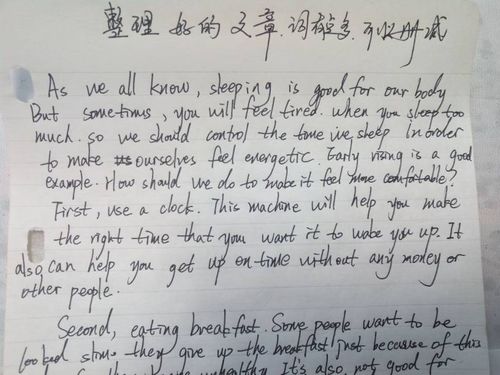 整理 好的 文章.词有多.可以删减
As we all know, sleeping is good for our body
But sometimes, you will feel tired. when you sleep too
much. so we should control the time we sleep in order
to make ourselves feel energetic. Early rising is a good
example. How should we do to make it feel more comfortable?
First, use a clock. This machine will help you make
the right time that you want it to wake you up. It
also can help you get up on time without any money or
other people.
Second, eating breakfast. Some people want to be
looked slim. they give up the breakfast just because of this
unhealthy. It's also not good for